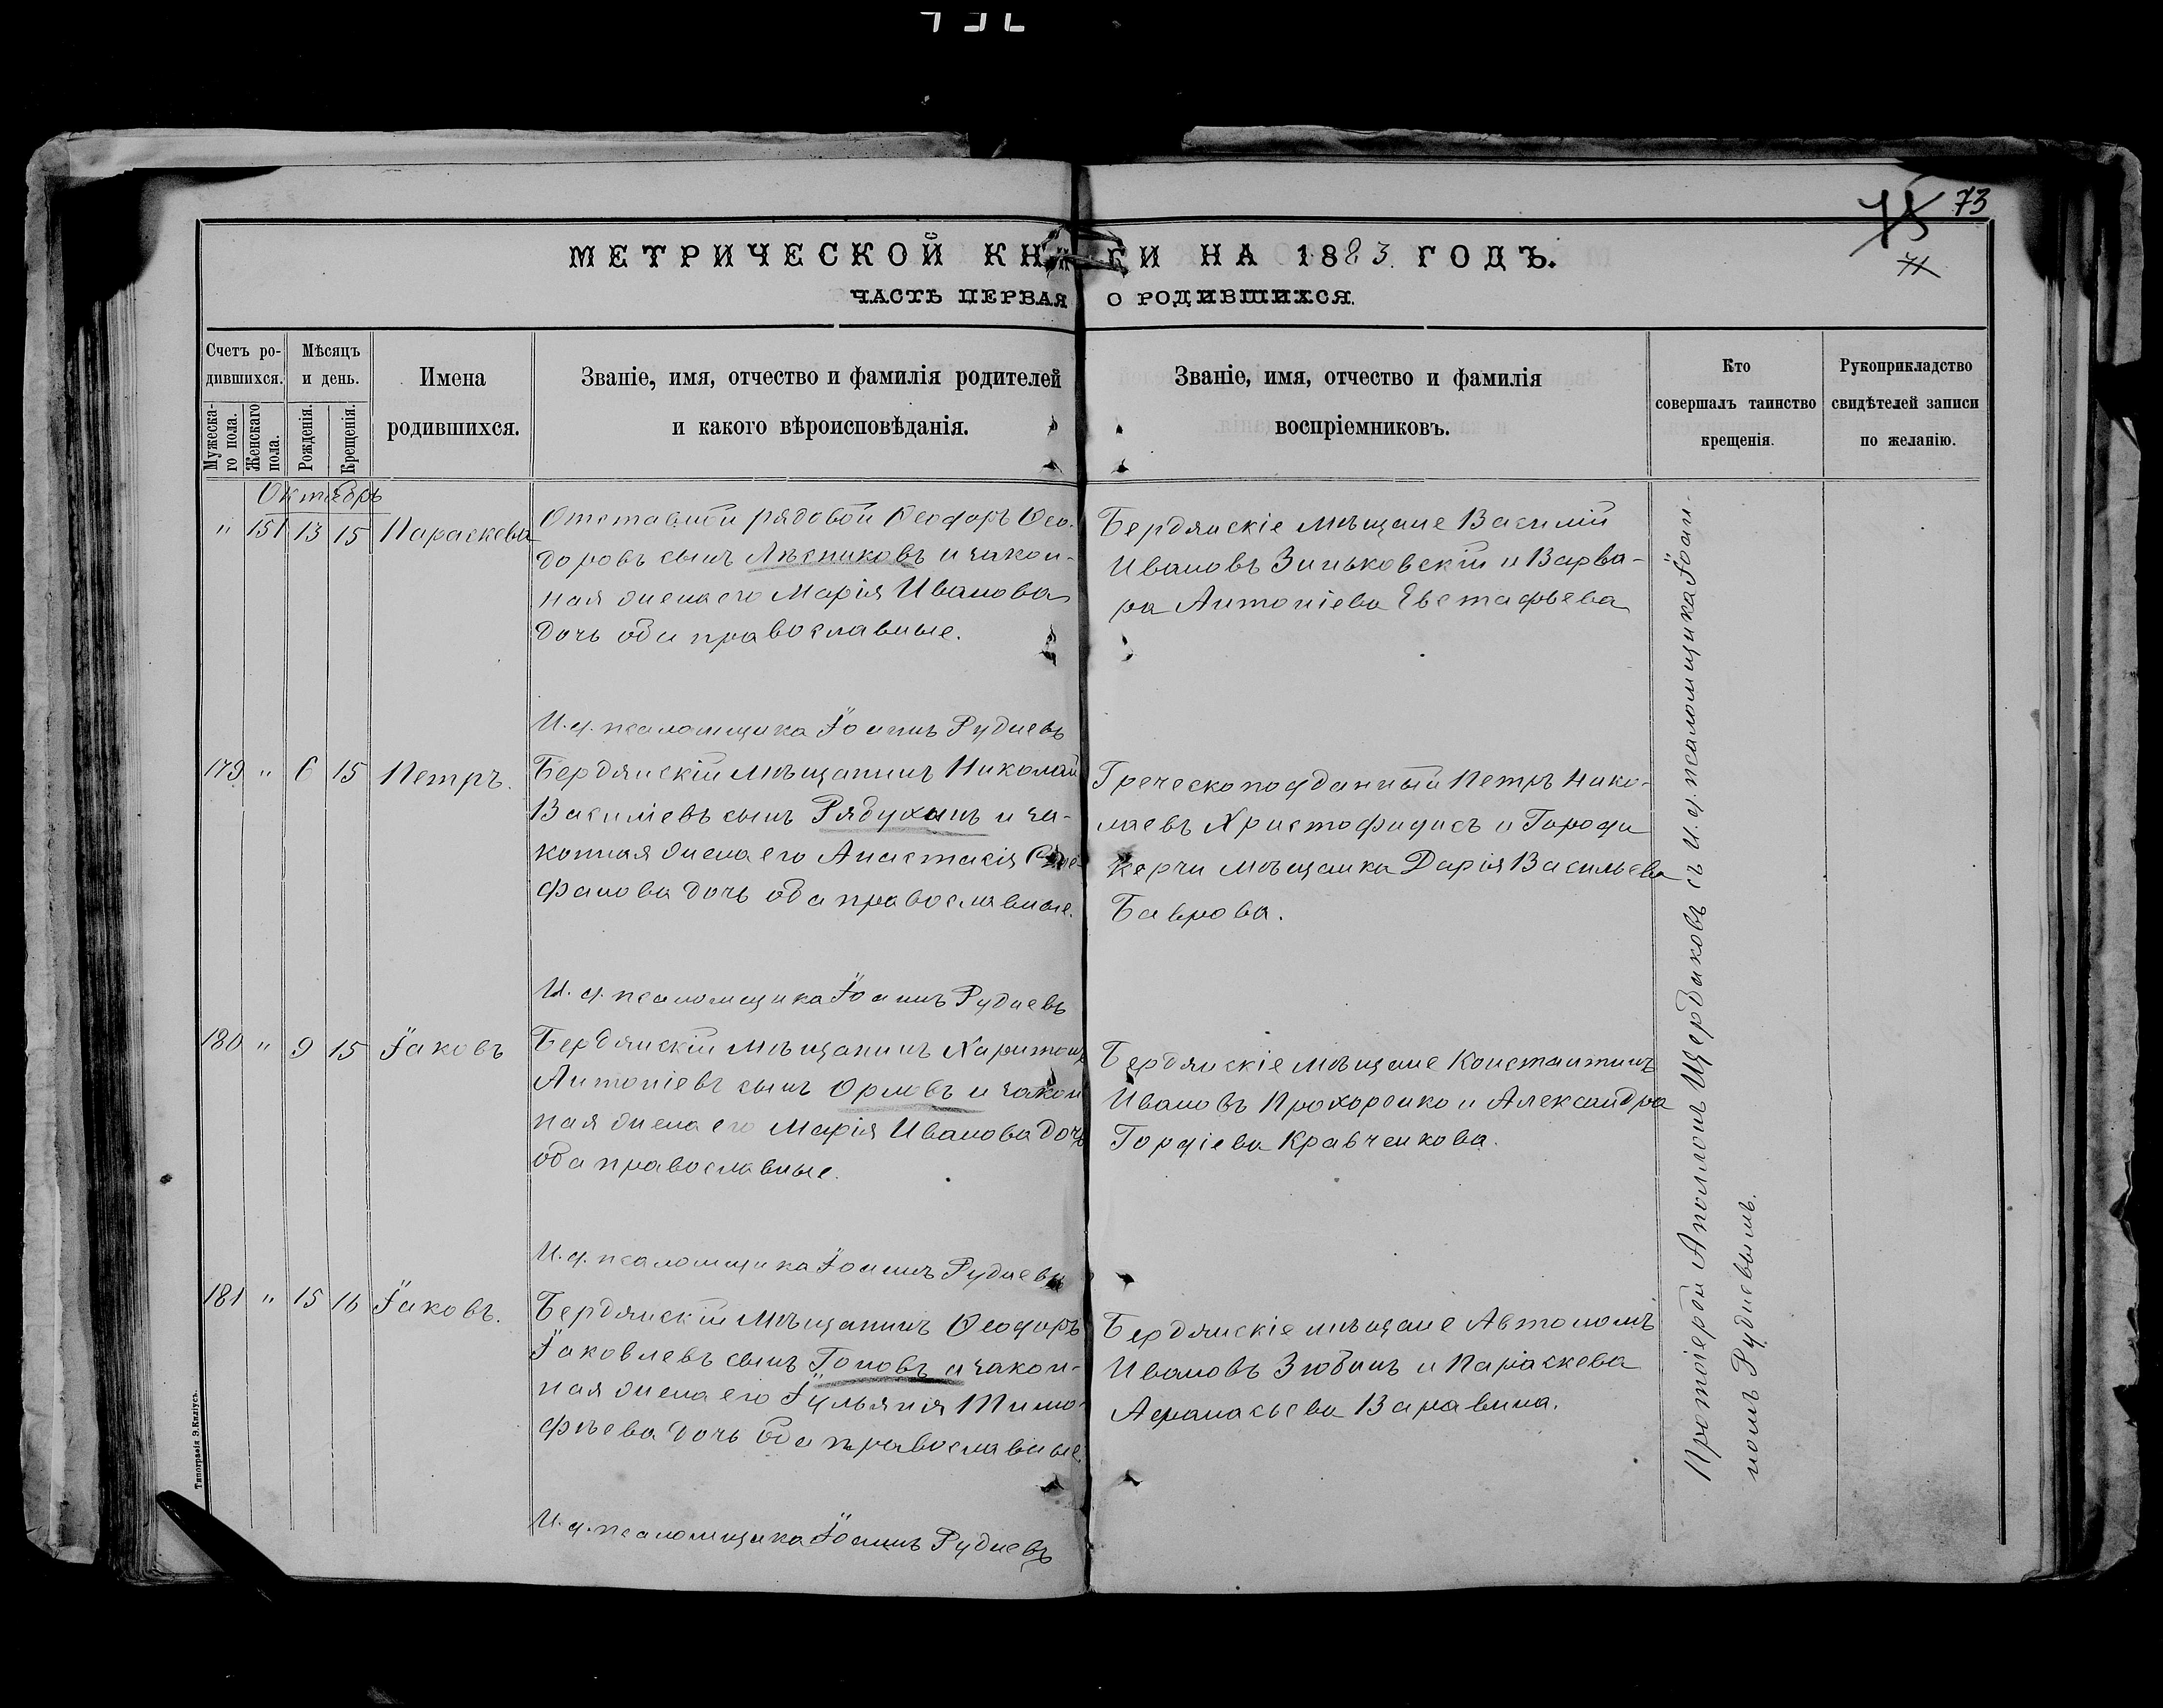 73
75
71
МЕТРИЧЕСКОЙ КНИГИ НА 1883 ГОДЪ.
ЧАСТЬ ПЕРВАЯ О РОДИВШИХСЯ.
Счетъ ро-
дившихся.
Мужеска-
го пола.
Женскаго
пола.
Мѣсяцъ
и день.
Рожденія.
Крещенія.
Имена
родившихся.
Званіе, имя, отчество и фамилія родителей
и какого вѣроисповѣданія.
Званіе, имя, отчество и фамилія
воспріемниковъ.
Кто
совершалъ таинство
крещенія.
Рукоприкладство
свидѣтелей записи
по желанію.
Октябрь
" 151 13 15 Параскева
Отставной рядовой Ѳеодоръ Ѳео-
доровъ сынъ Лѣсниковъ и закон-
ная жена его Марія Иванова
дочь оба православные.
Бердянскіе мѣщане Василій
Ивановъ Зиньковскій и Варва-
ра Антоніева Евстафьева
И. д. псаломщика Іоаннъ Рудневъ
179 " 6 15 Петръ.
Бердянскій мѣщанинъ Николай
Василіевъ сынъ Рябухинъ и за-
конная жена его Анастасія Сте-
фанова дочь оба православные.
Греческоподданный Петръ Нико-
лаевъ Христофидисъ и Города
Керчи мѣщанка Дарія Васильева
Баврова.
И. д. псаломщика Іоаннъ Рудневъ
180 " 9 15 Іаковъ
Бердянскій мѣщанинъ Харитонъ
Антоніевъ сынъ Орловъ и закон
ная жена его Марія Иванова дочь
оба православные.
Бердянскіе мѣщане Константинъ
Ивановъ Прохоренко и Александра
Гордіева Кравченкова.
И. д. псаломщика Іоаннъ Рудневъ
181 " 15 16 Іаковъ.
Бердянскій мѣщанинъ Ѳеодоръ
Іаковлевъ сынъ Поповъ и закон-
ная жена его Іуліянія Тимо-
фѣева дочь оба православные.
Бердянскіе мѣщане Автономъ
Ивановъ Зюбинъ и Параскева
Афанасьева Варавина.
И. д. псаломщика Іоаннъ Рудневъ
Протоіерей Аполлонъ Щербаковъ съ и. д. псаломщика Іоан-
номъ Рудневымъ.
Типографія Э. Килусъ.